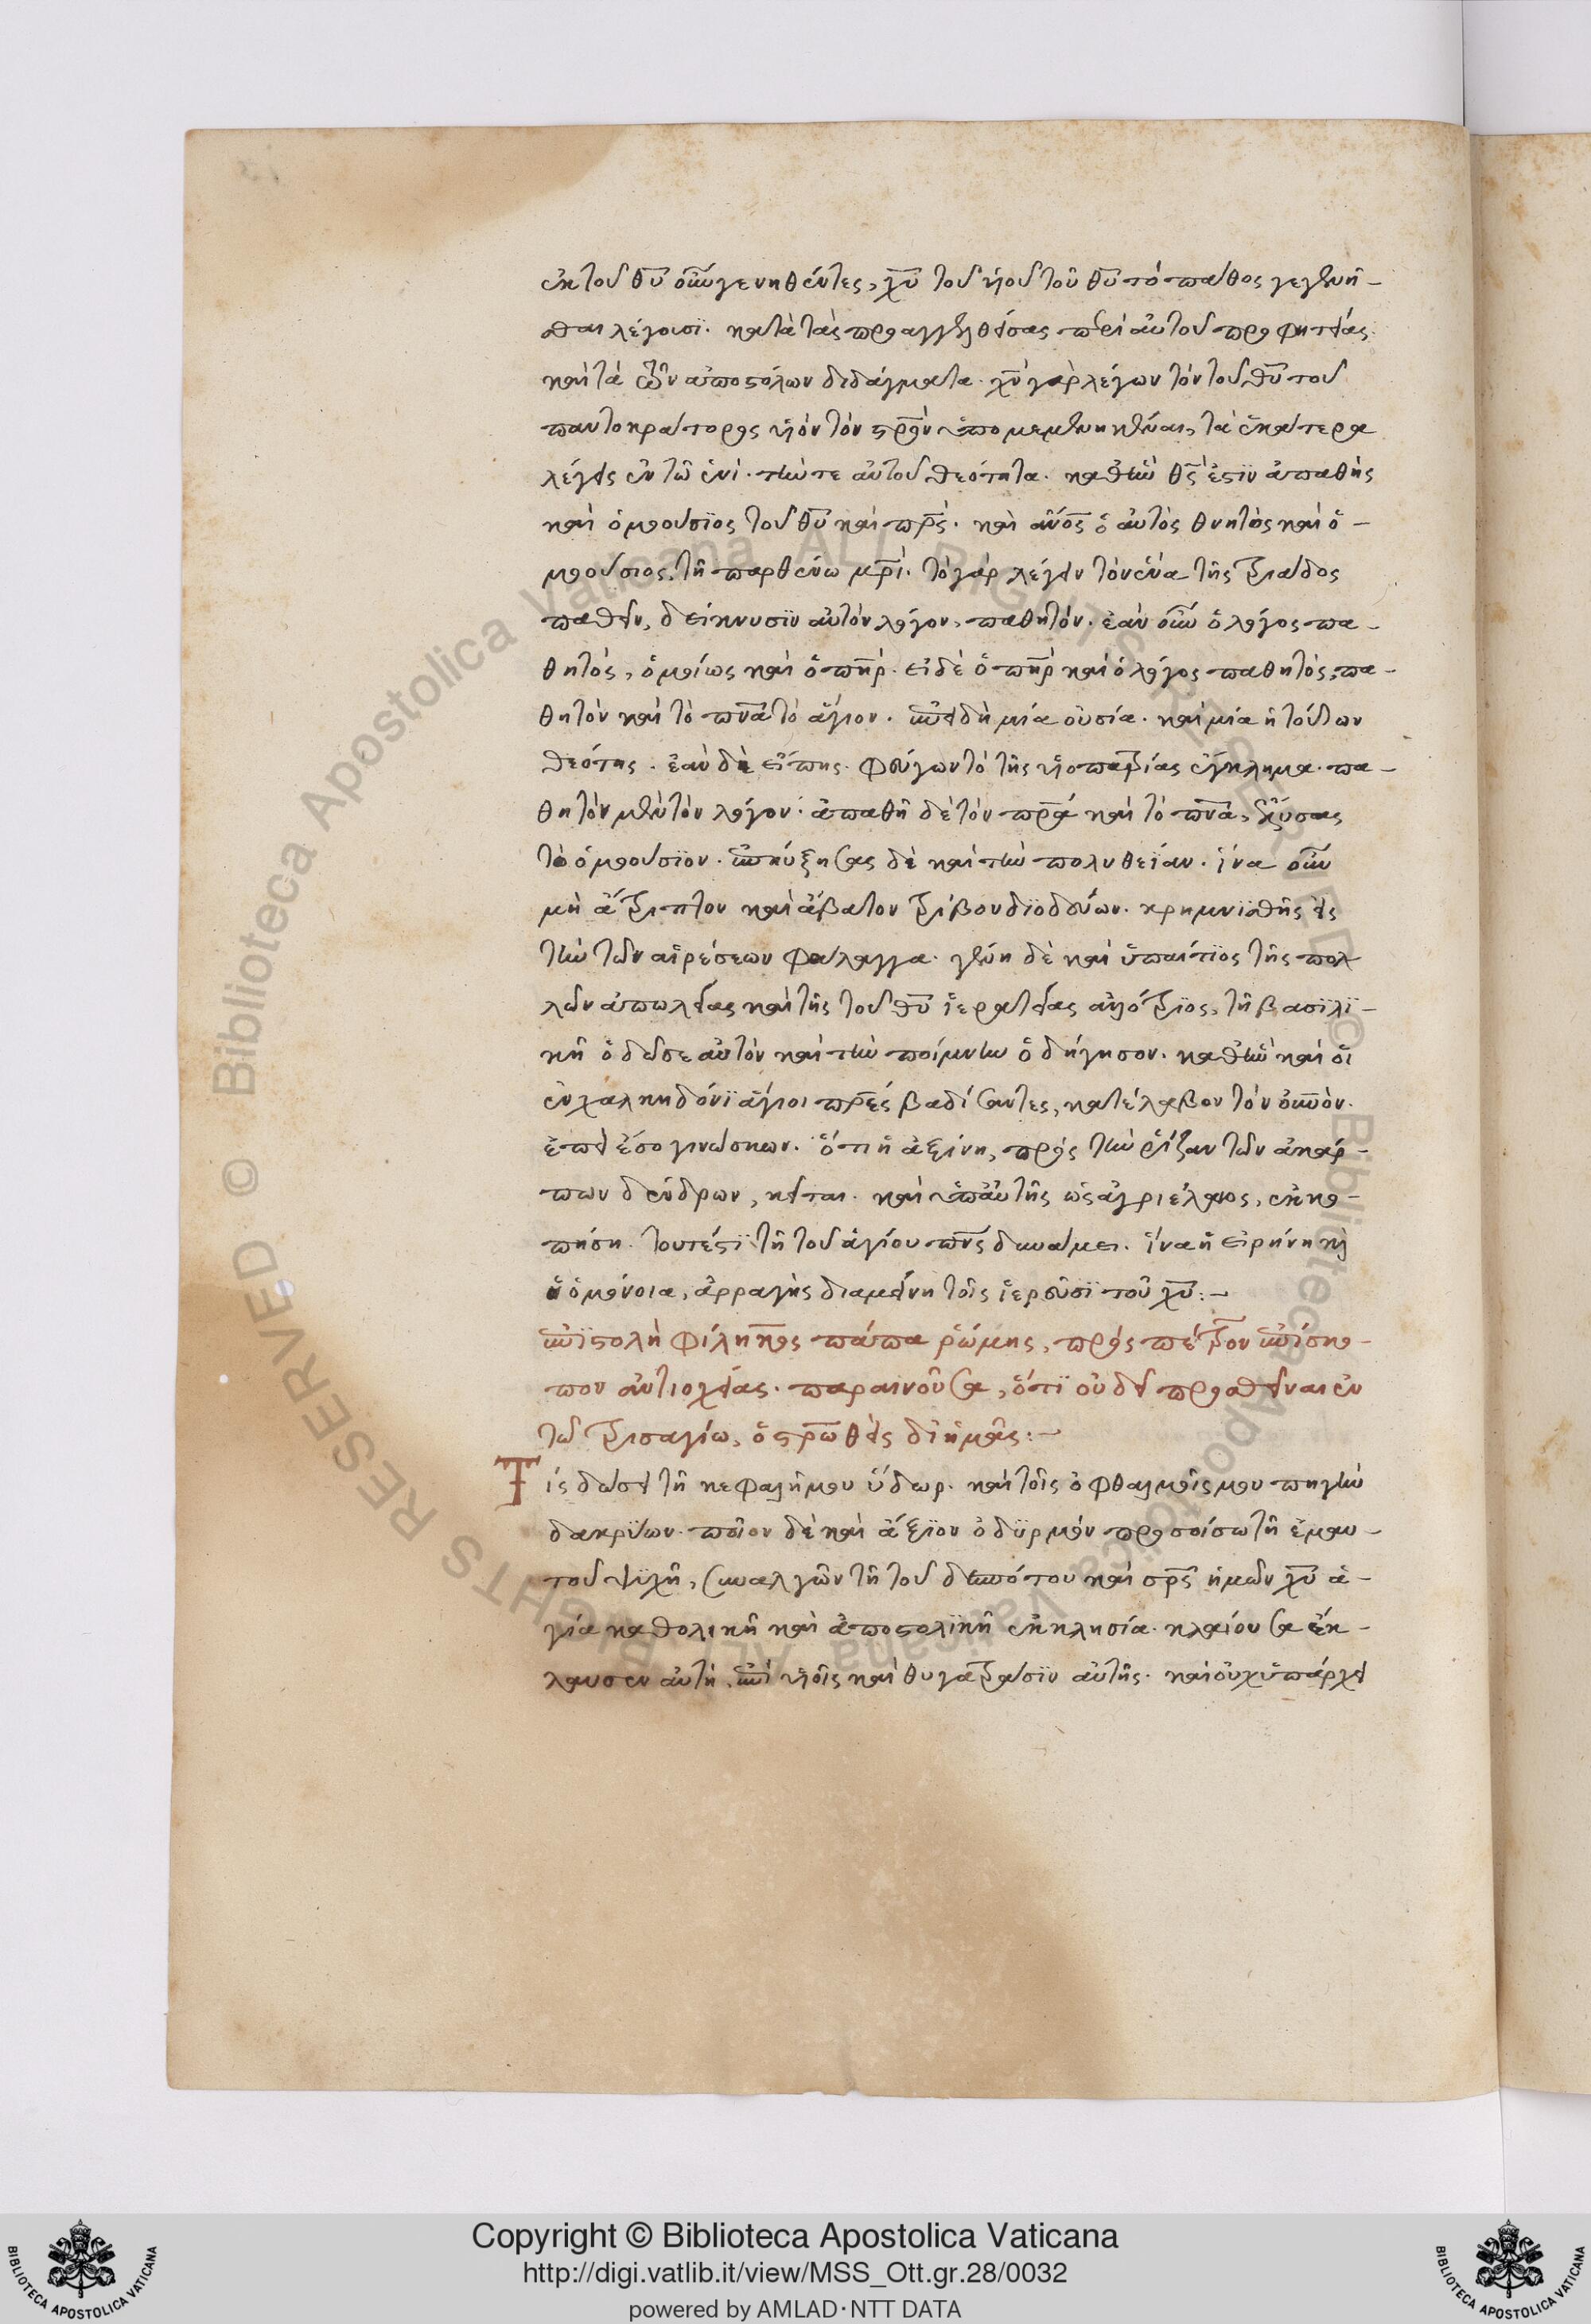 ἐκ τοῦ θῦ οὖν γενηθέντες, χῦ τοῦ υἱοῦ τοῦ θῦ τὸ πάθος γεγενῆ-
σθαι λέγουσϊ. κατὰ τὰς προαγγελθείσας περὶ αὐτοῦ προφητείας.
καὶ τὰ τῶν ἀποστόλων διδάγματα. χν γὰρ λέγων τὸν τοῦ θῦ τοῦ
παντοκράτορος υἱὸν τὸν στρον ὑπομεμενηκέναι, τὰ ἑκάτερα
λέγεις ἐν τῶ ἑνὶ. τήν τε αὐτοῦ θεότητα. καθ ἣν θς ἐστϊν ἀπαθὴς
καὶ ὁμοούσϊος τοῦ θῦ καὶ πρς. καὶ ανος ὁ αὐτὸς θνητὸς καὶ ὁ-
μοούσιος, τῆ παρθένω μρι. τὸ γὰρ λέγειν τὸν ἕνα τῆς τριάδος
παθεῖν, δείκνυσϊν αὐτὸν λόγον, παθητόν. ἐὰν οὖν ὁ λόγος πα-
θητὸς, ὁμοίως καὶ ὁ πηρ. εἰ δὲ ὁ πηρ καὶ ὁ λόγος παθητὸς, πα-
θητὸν καὶ τὸ πνα τὸ ἅγιον. ἐπειδὴ μία οὐσία. καὶ μία ἡ τούτων
θεότης. ἐὰν δὲ εἴπης. φεύγων τὸ τῆς υἱοπατρίας ἔγκλημα. πα-
θητὸν μὲν τὸν λόγον. ἀπαθῆ δὲ τὸν πρα καὶ τὸ πνα,
τὸ ὁμοούσϊον. ἐπηύξησας δὲ καὶ τὴν πολυθεΐαν. ἵνα οὖν
μὴ ἄτριπτον καὶ ἄβατον τρίβον διοδεύων. κρημνϊσθῆς εἰς
τὴν τῶν αἱρέσεων φάλαγγα. γένη δὲ καὶ ὑπαίτϊος τῆς πολ
λῶν ἀπωλείας καὶ τῆς τοῦ θῦ ἱερατείας ἀλότρϊος, τῆ βασϊλϊ-
κῆ ὁδεῦσε αὐτὸν καὶ τὴν ποίμνην ὁδήγησον. καθ ἣν καὶ οἱ
ἐν χαλκηδόνϊ ἅγιοι πρες βαδίσαντες, κατέλαβον τὸν σκοπὸν.
ἐπεὶ ἔσο γινώσκων. ὅτι ἡ ἀξίνη, πρὸς τὴν ῥίζαν τῶν ἀκάρ-
πων δένδρων, κεῖται. καὶ ὑπ αὐτῆς ὡς ἀγριέλαιος, ἐκκο-
πήση. τουτέστϊ τῆ τοῦ ἁγίου πνς δυνάμει. ἵνα ἡ εἰρήνη κ
ἡ ὁμόνοια, ἀρραγὴς διαμείνη τοῖς ἱεροῦσϊ τοῦ χῦ:-
ἐπϊστολὴ φίληκος πάπα ῥώμης, πρὸς πέτρον ἐπίσκο-
πον ἀντιοχείας. παραινοῦσα, ὅτϊ οὐ δεῖ προσθεῖναι ἐν
τῶ τρισαγίω, ὁ στρωθεὶς δι ἡμᾶς:-
Τίς δώσει τῆ κεφαλῆ μου ὕδωρ. καὶ τοῖς ὀφθαλμοῖς μου πηγὴν
δακρΰων. ποῖον δὲ καὶ ἄξϊον ὀδυρμόν προσοίσω τῆ ἐμαυ-
τοῦ ψϋχῆ, συναλγῶν τῆ τοῦ δεσπότου καὶ σρς ἡμῶν χῦ ἁ-
γία καθολικῆ καὶ ἀποστολϊκῆ ἐκκλησία. κλαίουσα ἔκ-
λαυσεν αὐτὴ, ἐπὶ υἱοῖς καὶ θυγατράσϊν αὐτῆς. καὶ οὐχ ὑπάρχει
Copyright © Biblioteca Apostolica Vaticana
http://digi.vatlib.it/view/MSS_Ott.gr.28/0032
powered by AMLAD·NTT DATA
BIBLIOTECA APOSTOLICA VATICANA
BIBLIOTECA APOSTOLICA VATICANA
© Biblioteca Apostolica Vaticana ALL RIGHTS RESERVED
© Biblioteca Apostolica Vaticana ALL RIGHTS RESERVED